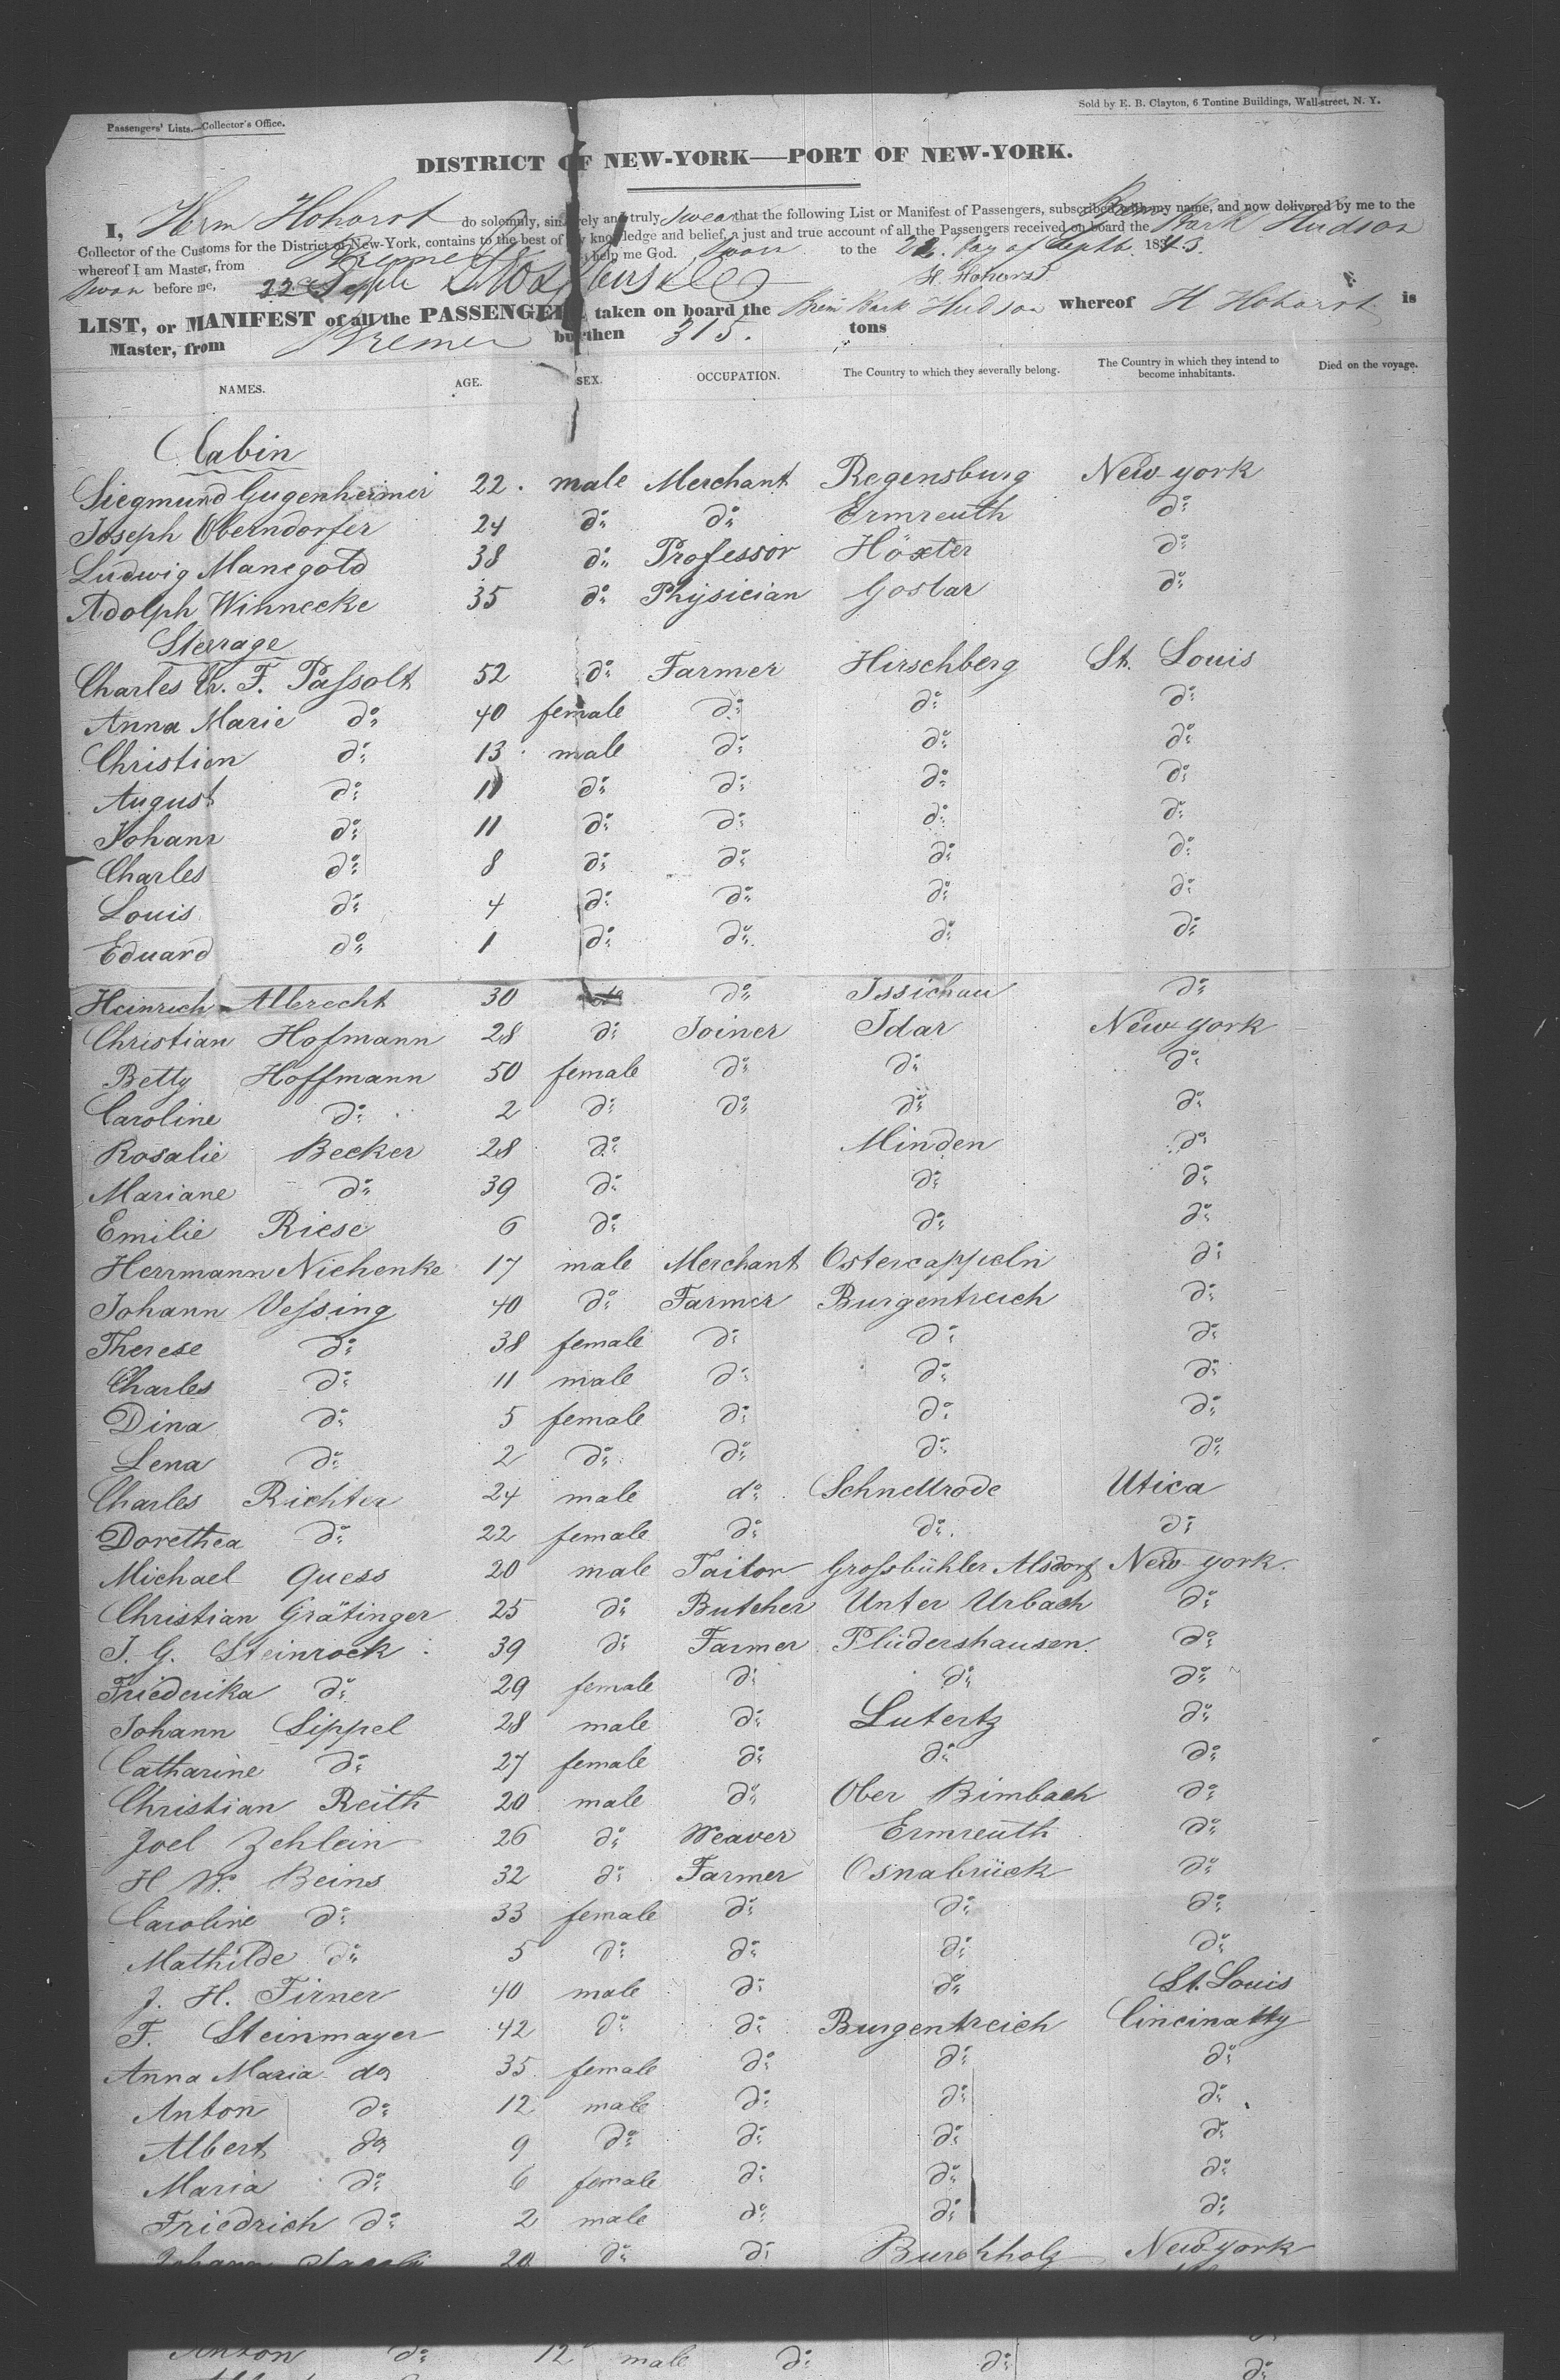 Passengers' Lists.—Collector's Office.
Sold by E. B. Clayton, 6 Tontine Buildings, Wall-street, N. Y.
DISTRICT OF NEW-YORK—PORT OF NEW-YORK.
I, Herm Hohorst do solemnly, sincerely and truly swear that the following List or Manifest of Passengers, subscribed with my name, and now delivered by me to the
Collector of the Customs for the District of New-York, contains to the best of my knowledge and belief, a just and true account of all the Passengers received on board the Brem Bark Hudson
whereof I am Master, from Bremen help me God. Sworn to the 22. Day of Septb. 1843.
Sworn before me, 22 Sept H. Hohorst
LIST, or MANIFEST of all the PASSENGERS taken on board the Brem Bark Hudson whereof H Hohorst is
Master, from Bremen burthen 315. tons
NAMES. AGE. SEX. OCCUPATION. The Country to which they severally belong. The Country in which they intend to become inhabitants. Died on the voyage.
Cabin
Siegmund Gugenheimer 22. male Merchant Regensburg New york
Joseph Oberndorfer 24 do do Ermreuth do
Ludwig Manegold 38 do Professor Höxter do
Adolph Winnecke 35 do Physician Goslar do
Sterage
Charles Ch. F. Paſsolt 52 do Farmer Hirschberg St. Louis
Anna Marie do 40 female do do do
Christian do 13 male do do do
August do 11 do do do do
Johann do 11 do do do do
Charles do 8 do do do do
Louis do 4 do do do do
Eduard do 1 do do do do
Heinrich Albrecht 30 do do Issichau do
Christian Hofmann 28 do Joiner Idar New york
Betty Hoffmann 50 female do do do
Caroline do 2 do do do do
Rosalie Becker 28 do Minden do
Mariane do 39 do do do
Emilie Riese 6 do do do
Herrmann Niehenke 17 male Merchant Ostercappeln do
Johann Veſsing 40 do Farmer Burgentreich do
Therese do 38 female do do do
Charles do 11 male do do do
Dina do 5 female do do do
Lena do 2 do do do do
Charles Richter 24 male do Schnellrode Utica
Dorethea do 22 female do do do
Michael Quess 20 male Tailor Groſsbühler Alsdorf New york.
Christian Grätinger 25 do Butcher Unter Urbach do
J. G. Steinrock 39 do Farmer Plüdershausen do
Friederika do 29 female do do do
Johann Lippel 28 male do Lutertz do
Catharine do 27 female do do do
Christian Reith 20 male do Ober Bimbach do
Joel Zehlein 26 do Weaver Ermreuth do
H W. Beins 32 do Farmer Osnabrück do
Caroline do 33 female do do do
Mathilde do 5 do do do do
J. H. Firner 40 male do do St. Louis
F. Steinmayer 42 do do Burgentreich Cincinatty
Anna Maria do 35 female do do do
Anton do 12 male do do do
Albert do 9 do do do do
Maria do 6 female do do do
Friedrich do 2 male do do do
Johann 20 do do Burchholz New york
Anton do 12 male do do do